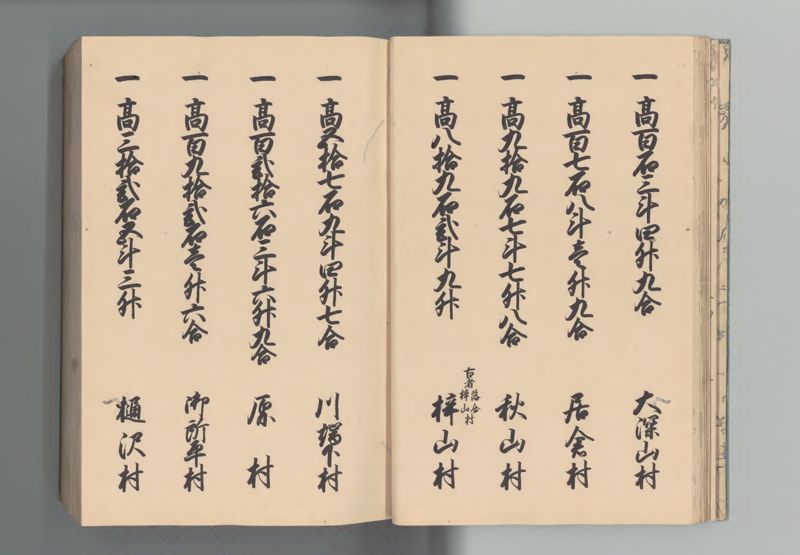 一 高百石三斗四升九合 大深山村
一 高百七石八斗壱升九合 居倉村
一 高九拾九石七斗七升八合 秋山村
一 高八拾九石弐斗九升 古者落合村梓山 梓山村
一 高五拾七石九斗四升七合 川端下村
一 高百弐拾六石三斗六升九合 原村
一 高百九拾弐石壱升六合 御所平村
一 高三拾弐石五斗三升 樋沢村